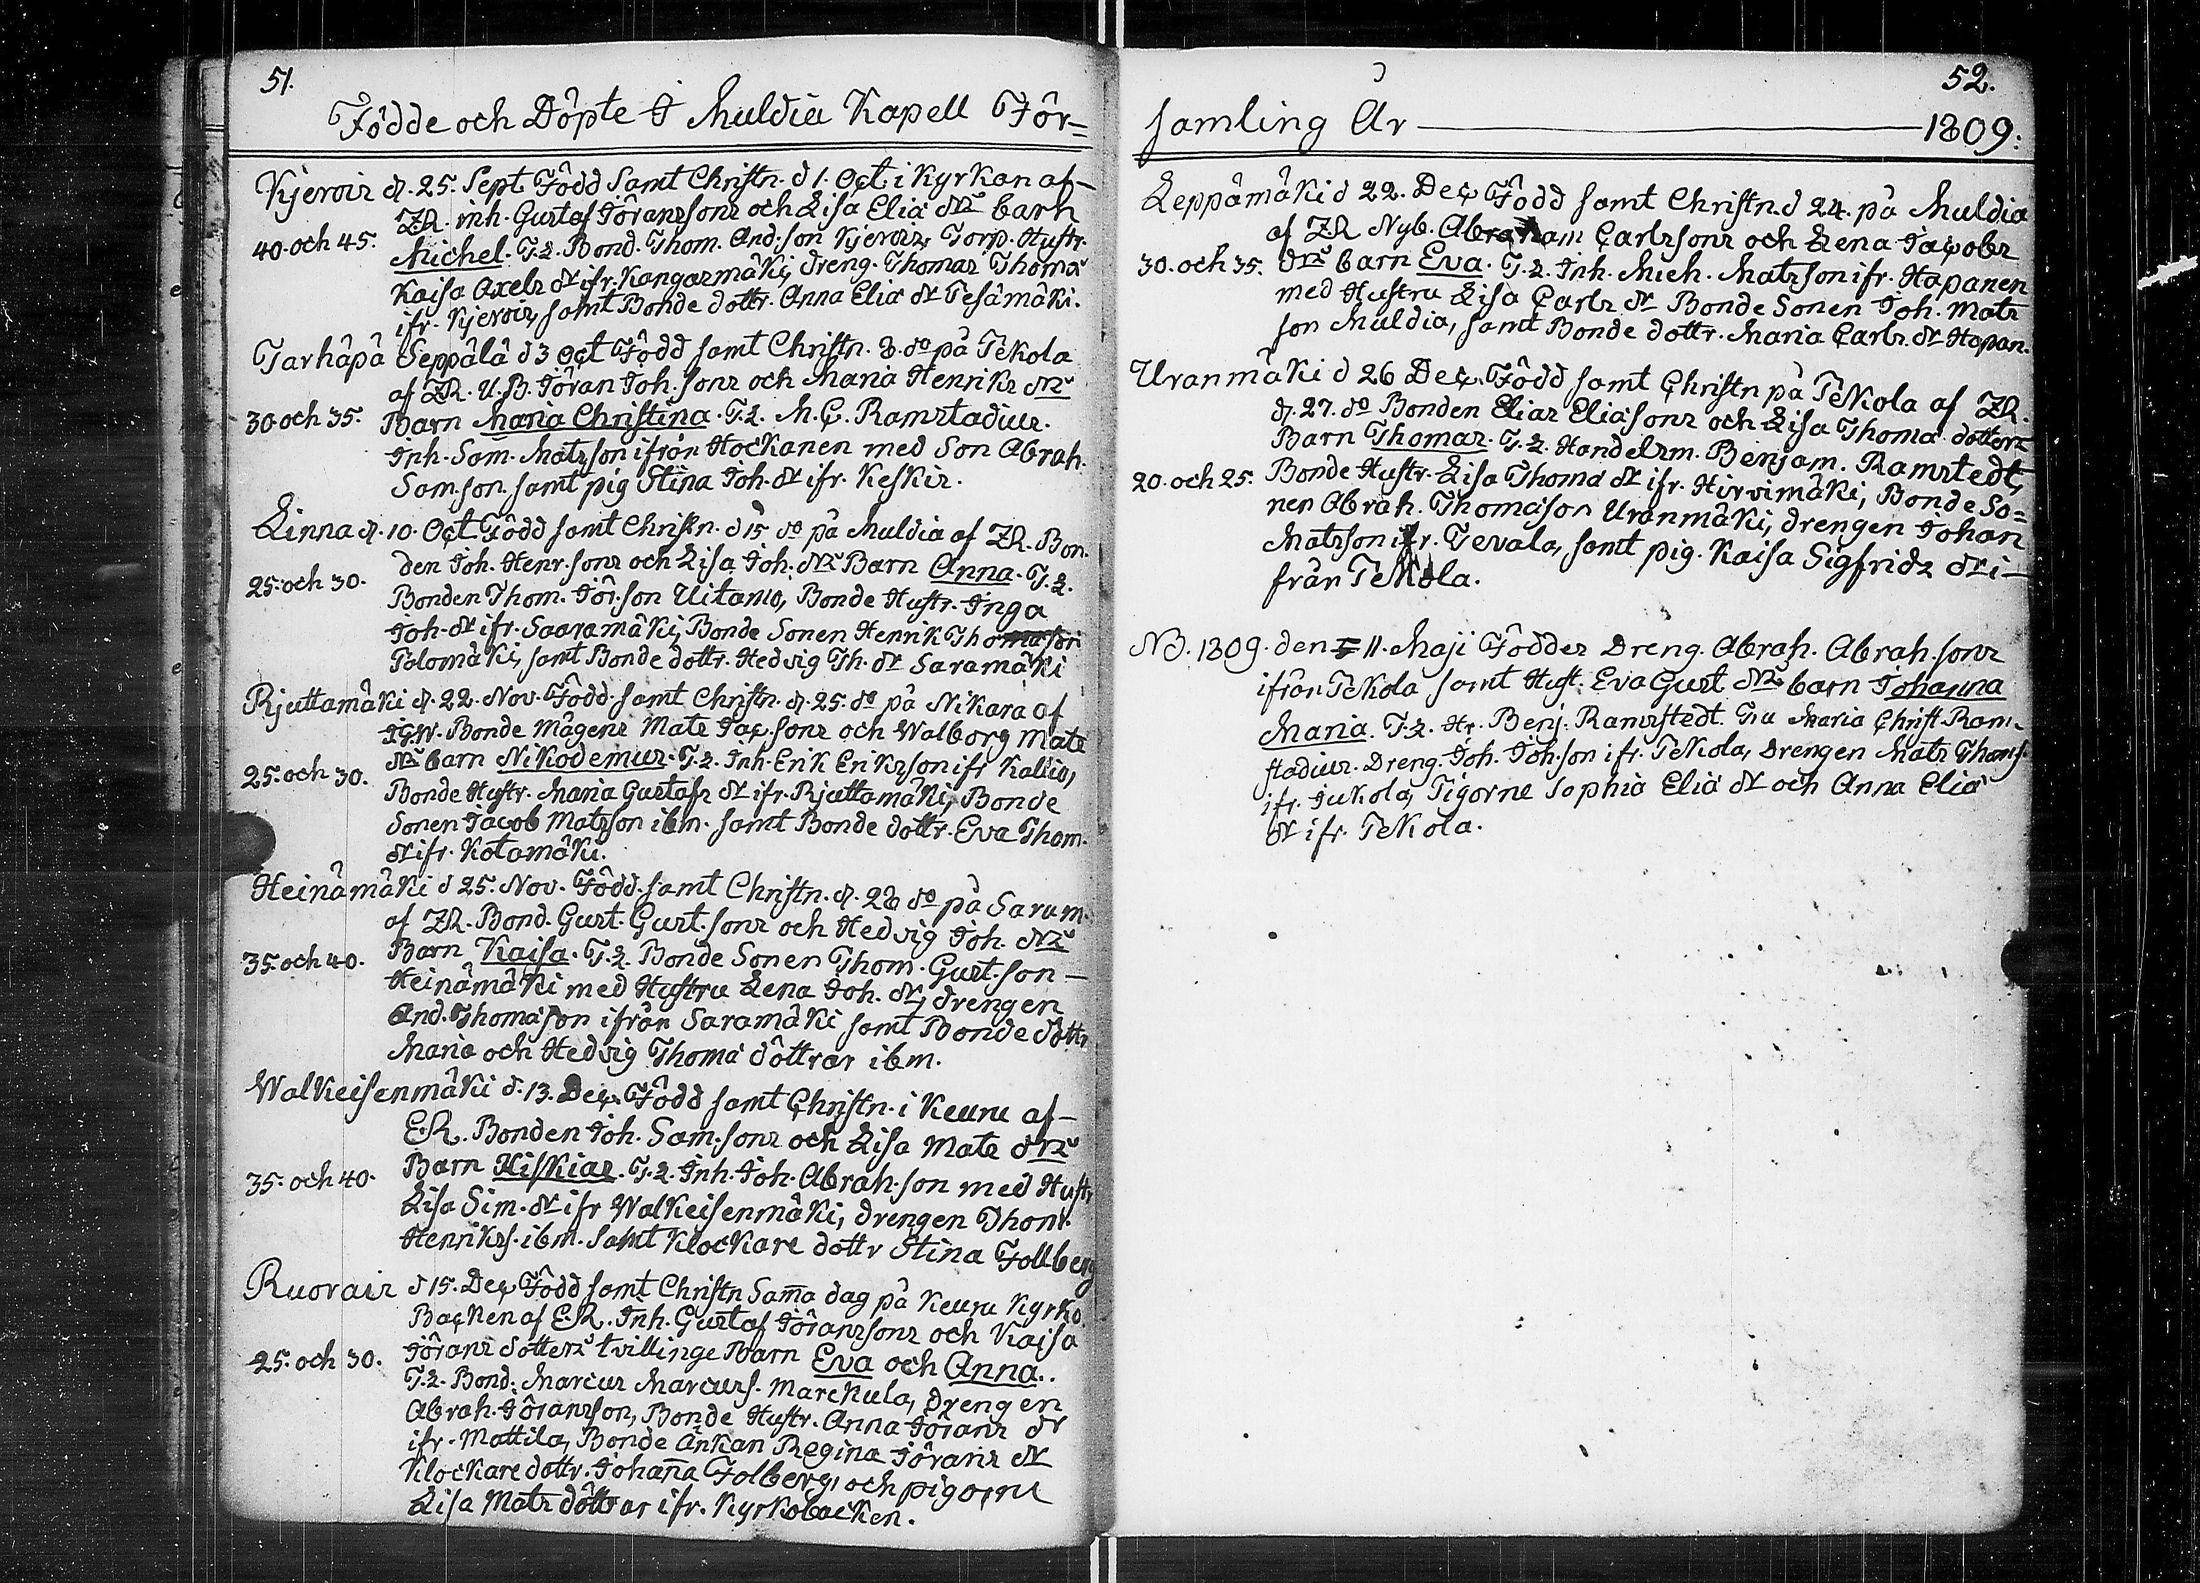 51.
Födde och Döpte I Muldia Kapell För=
Kjerois d. 25. Sept Född Samt Christn. d 1. Oct i Kyrkan af
ZR. inh. Gustaf Göransons och Lisa Eliä drs barn
40. och 45. Michel. T.2. Bond. Thom. And.son Kjerois, Torp. Hustr.
Kaisa Axels dr ifr. Kangasmäki, dreng. Thomas Thomæ
ifr. Kjerois, samt Bonde dottr. Anna Eliä dr Tesämäki.
Tarhapä Seppälä d 3 Oct Född samt Christn. 8. do på Tekola
af ZR. U.B. Jöran Joh.sons och Maria Henriks drs
30. och 35. Barn Maria Christina. T.2. M.C. Ramstadius.
Inh. Sam. Matsson ifrån Hockanen med Son Abrah.
Sam.son. samt pig Stina Joh. dr ifr. Keskis.
Linna d. 10. Oct Född samt Christn. d 15 do på Muldia af ZR. Bon.
den Joh. Henr.sons och Lisa Joh. drs Barn Anna. T.2.
25. och 30. Bonden Thom. Jör.son Uitamo, Bonde Hustr. Inga
Joh. dr ifr. Saaramäki, Bonde Sonen Henrik Thomason
Polomäki, samt Bonde dottr. Hedvig Th. dr Saramäki
Rjuttamäki d. 22. Nov. Född samt Christn. d. 25. do på Nikara af
Bonde Mågens Mats Jac.sons och Walborg Mats
drs barn Nikodemus. T.2. Inh. Erik Eriksson ifr Kallio,
25. och 30. Bonde Hustr. Maria Gustafs dr ifr. Rjuttamäki, Bonde
Sonen Jacob Matsson ibm. samt Bonde dottr. Eva Thom.
dr ifr. Kotamäki.
Heinämäki d 25. Nov. Född samt Christn. d. 28 do på Saram.
af ZR. Bond. Gust. Gust.sons och Hedvig Joh. drs
35. och 40. Barn Kaisa. T.2. Bonde Sonen Thom. Gust.son
Heinämäki med Hustru Lena Joh. dr, drengen
And. Thomason ifrån Saramäki samt Bonde dottr
Maria och Hedvig Thomä döttrar ibm.
Walkeisenmäki d. 13. Dec. Född samt Christn. i Keuru af
E.R. Bonden Joh. Sam.sons och Lisa Mats drs
35. och 40. Barn Hiskias. T.2. Inh. Joh. Abrah.son med Hustr
Lisa Sim. dr ifr Walkeisenmäki, drengen Thom.
Henriks. ibm. samt Klockare dottr Stina Follberg
Ruorais d 15. Dec. Född samt Christn Sama dag på Keuru Kyrko
Backen af E.R. Inh. Gustaf Jöransons och Kaisa
25. och 30. Jörans dotters tvillinge Barn Eva och Anna..
T.2. Bond. Marcus Marcuss. Marckula, drengen
Abrah. Jöransson, Bonde Hustr. Anna Jörans dr
ifr. Mattila, Bonde Änkan Regina Jörans dr
Klockare dottr. Johana Folberg, och pigorne
Lisa Mats döttrar ifr. Kyrkobacken.
52.
samling År 1809.
Leppämäki d 22. Dec Född samt Christn. d 24. på Muldia
af ZR Nyb. Abraham Carlssons och Lena Jacobs
30. och 35. drs barn Eva. T.2. Inh. Mich. Matsson ifr. Hapanen
med Hustru Lisa Carls dr Bonde Sonen Joh. Mats
son Muldia, samt Bonde dottr. Maria Carls. dr Hapan.
Uranmäki d 26 Dec. Född samt Christn på Tekola af ZR.
d. 27. do Bonden Elias Eliäsons och Lisa Thomä dotters
Barn Thomas. T.2. Handelsm. Benjam. Ramstedt,
20. och 25. Bonde Hustr. Lisa Thomä dr ifr. Hirvimäki, Bonde So=
nen Abrah. Thomäson Uranmäki, drengen Johan
Matsson ifr. Tevala, samt pig. Kaisa Sigfrids dr i
från Tekola.
NB. 1809. den 11. Maji Föddes Dreng. Abrah. Abrah.sons
ifrån Tekola samt Hust. Eva Gust drs barn Johanna
Maria. T.2. Hr. Benj. Ramstedt. Fru Maria Christ. Ram.
stadius. Dreng. Joh. Joh.son ifr. Tekola, Drengen Mats Thoms.
ifr. Jukola, Pigorne Sophia Eliä dr och Anna Eliä
dr ifr. Tekola.